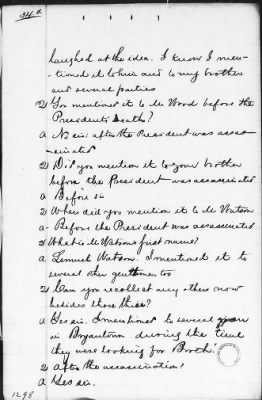 laughed at the idea. I know I men-
tioned it to him and to my brother
and several parties
Q You mentioned it to Mr Wood before the
Presidents Death?
A No sir: after the President was assas-
sinated
Q Did you mention it to your brother
before the President was assassinated
A Before sir
Q Where did you mention it to Mr Watson
A Before the President was assassinated
Q What is Mr Watsons first name?
A Lemuel Watson. I mentioned it to
several other gentlemen too
Q Can you recollect any others now
besides those three?
A Yes sir. I mentioned to several
in Bryantown during the time
they were looking for Booth.
Q After the assassination?
A Yes sir.
1298